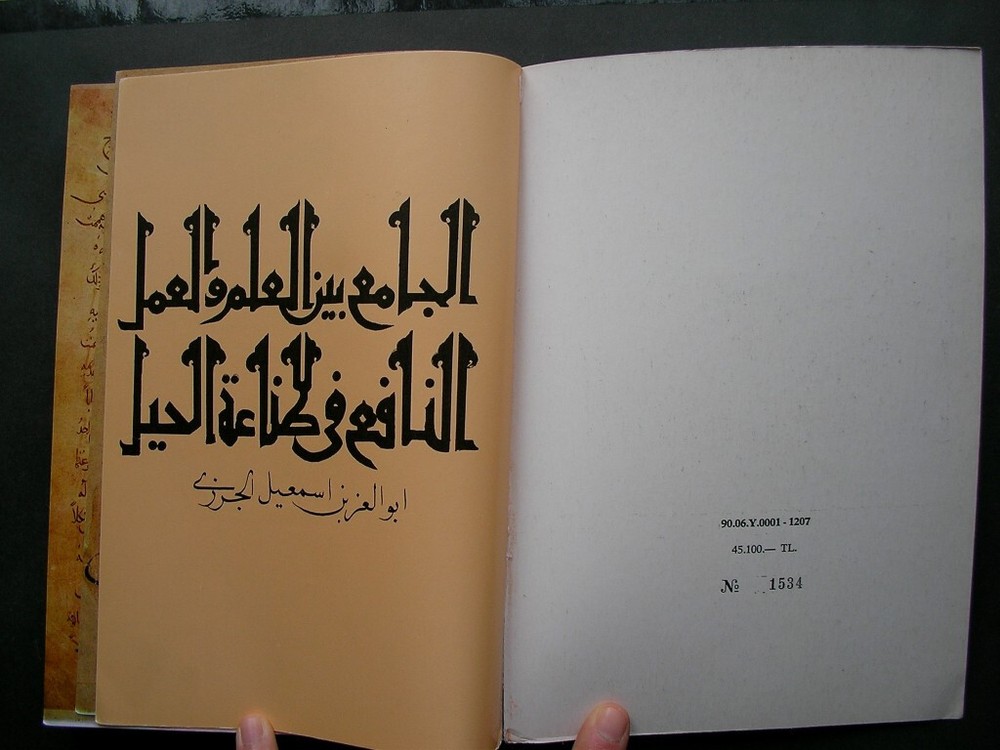 الجامع بين العلم والعمل
النافع في صناعة الحيل
ابو العز بن اسمعيل الجزري
90.06.Y.0001 - 1207
45.100.— TL.
№ 1534